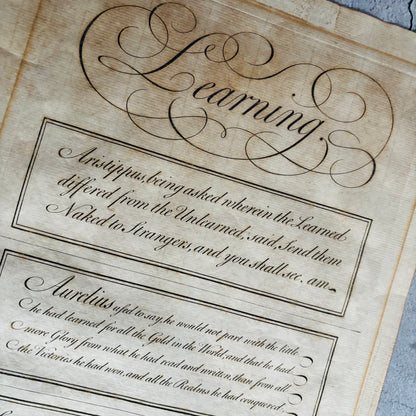 Learning.
Aristippus, being asked wherein the Learned
differed from the Unlearned, said, Send them
Naked to Strangers, and you shall see. am
Aurelius used to say, he would not part with the little
he had learned for all the Gold in the World; and that he had
more Glory from what he had read and written, than from all
the Victories he had won, and all the Realms he had conquered.